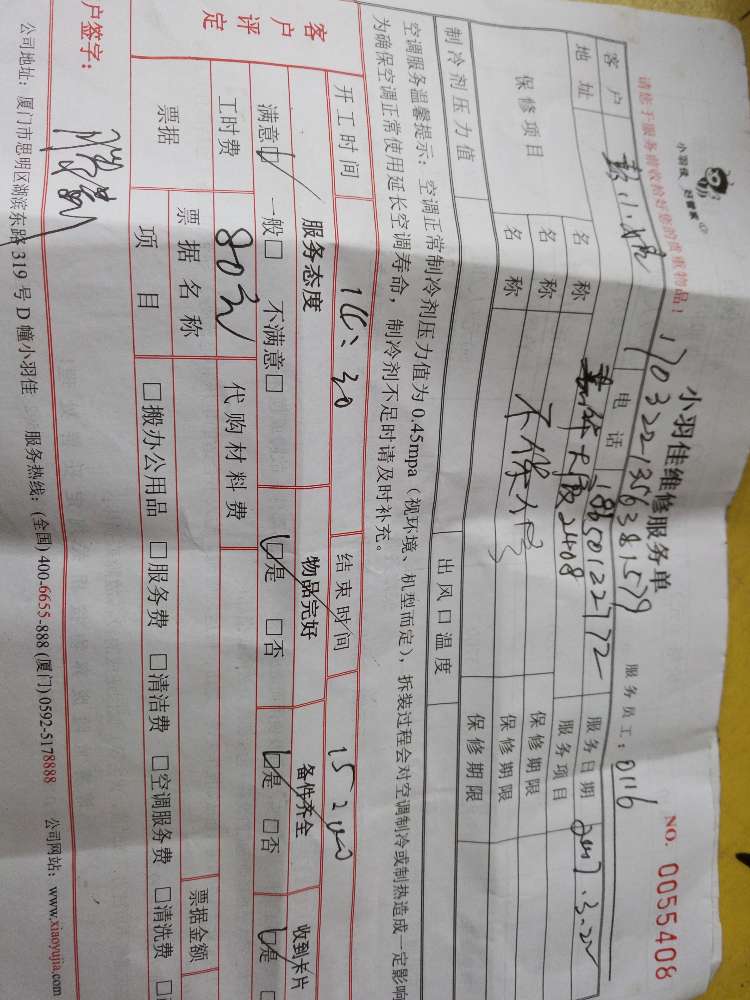 小羽佳维修服务单
NO. 0055408
小羽佳 好管家
请您于服务前收拾好您的贵重物品！
1703221356381579
服务员工：0116
客户
电话 18650122772
服务日期 2017.3.22
地址 2408
服务项目
保修项目
名称 不保修 保修期限
名称 保修期限
名称 保修期限
制冷剂压力值
出风口温度
空调服务温馨提示：空调正常制冷剂压力值为 0.45mpa（视环境、机型而定），拆装过程会对空调制冷或制热造成一定影响
为确保空调正常使用延长空调寿命，制冷剂不足时请及时补充。
开工时间 结束时间
客户评定
服务态度 物品完好 备件齐全 收到卡片
满意□ 一般□ 不满意□ □是 □否 □是 □否 □是
工时费 80元 代购材料费
票据
票据名称 票据金额
项目 □搬办公用品 □服务费 □清洁费 □空调服务费 □清洗费
户签字：
公司地址：厦门市思明区湖滨东路 319 号 D 幢小羽佳 服务热线：(全国) 400-6655-888 (厦门) 0592-5178888 公司网站：www.xiaoyujia.com